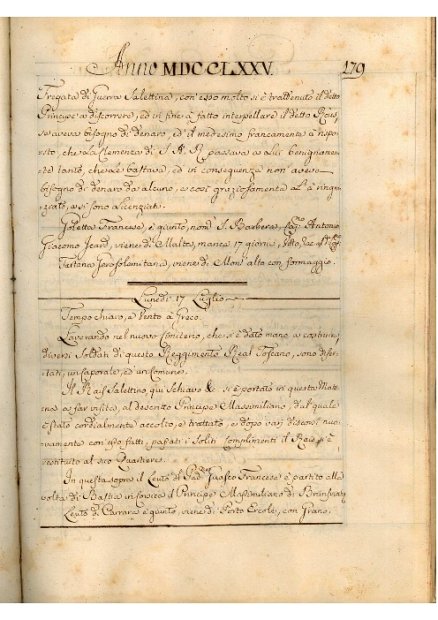 Anno MDCCLXXV. 179
Fregata di Guerra Salettina, con' esso molto si è trattenuto il detto
Principe a discorrere, ed in fine à fatto interpellare il detto Rais,
se aveva bisogno di denaro, ed il medesimo francamente à rispo-
sto, che la Clemenza di S. A. R. passava a lui benignamen-
te tanto, che le bastava, ed in conseguenza non aveva
bisogno di denaro da alcuno, e così graziosamente l' à ringra-
ziato, e si sono licenziati.
Goletta Francese, è quinto, nom.ª S. Barbera, Cap. Antonio
Giacomo Jeard, viene di Malta, manca 17 giorni,
Tartana Gerosolimitana, viene di Mont' alto con formaggio.
Lunedì 17 Luglio
Tempo chiaro, e Vento a Greco.
Lavorando nel nuovo Cimiterio, che si è dato mano a costruire,
diversi Soldati di questo Reggimento Real Toscano, sono diser-
tati, un caporale, ed un Comune.
Il Rais Salettino, qui Schiavo & si è portato in questa Matt-
ina a far visita, al descritto Principe Massimiliano, dal quale
è stato cordialmente accolto, e trattato, e dopo varj discorsi nuo-
vamente con esso fatti, passati i soliti Complimenti il Rais si è
restituito al suo Quartiere.
In questa sopra il Leuto di Pad. Francese è partito alla
volta di Bastia in Corsica il Principe Massimiliano di
Leuto di Carrara è quinto, viene di Porto Ercole, con Grano.